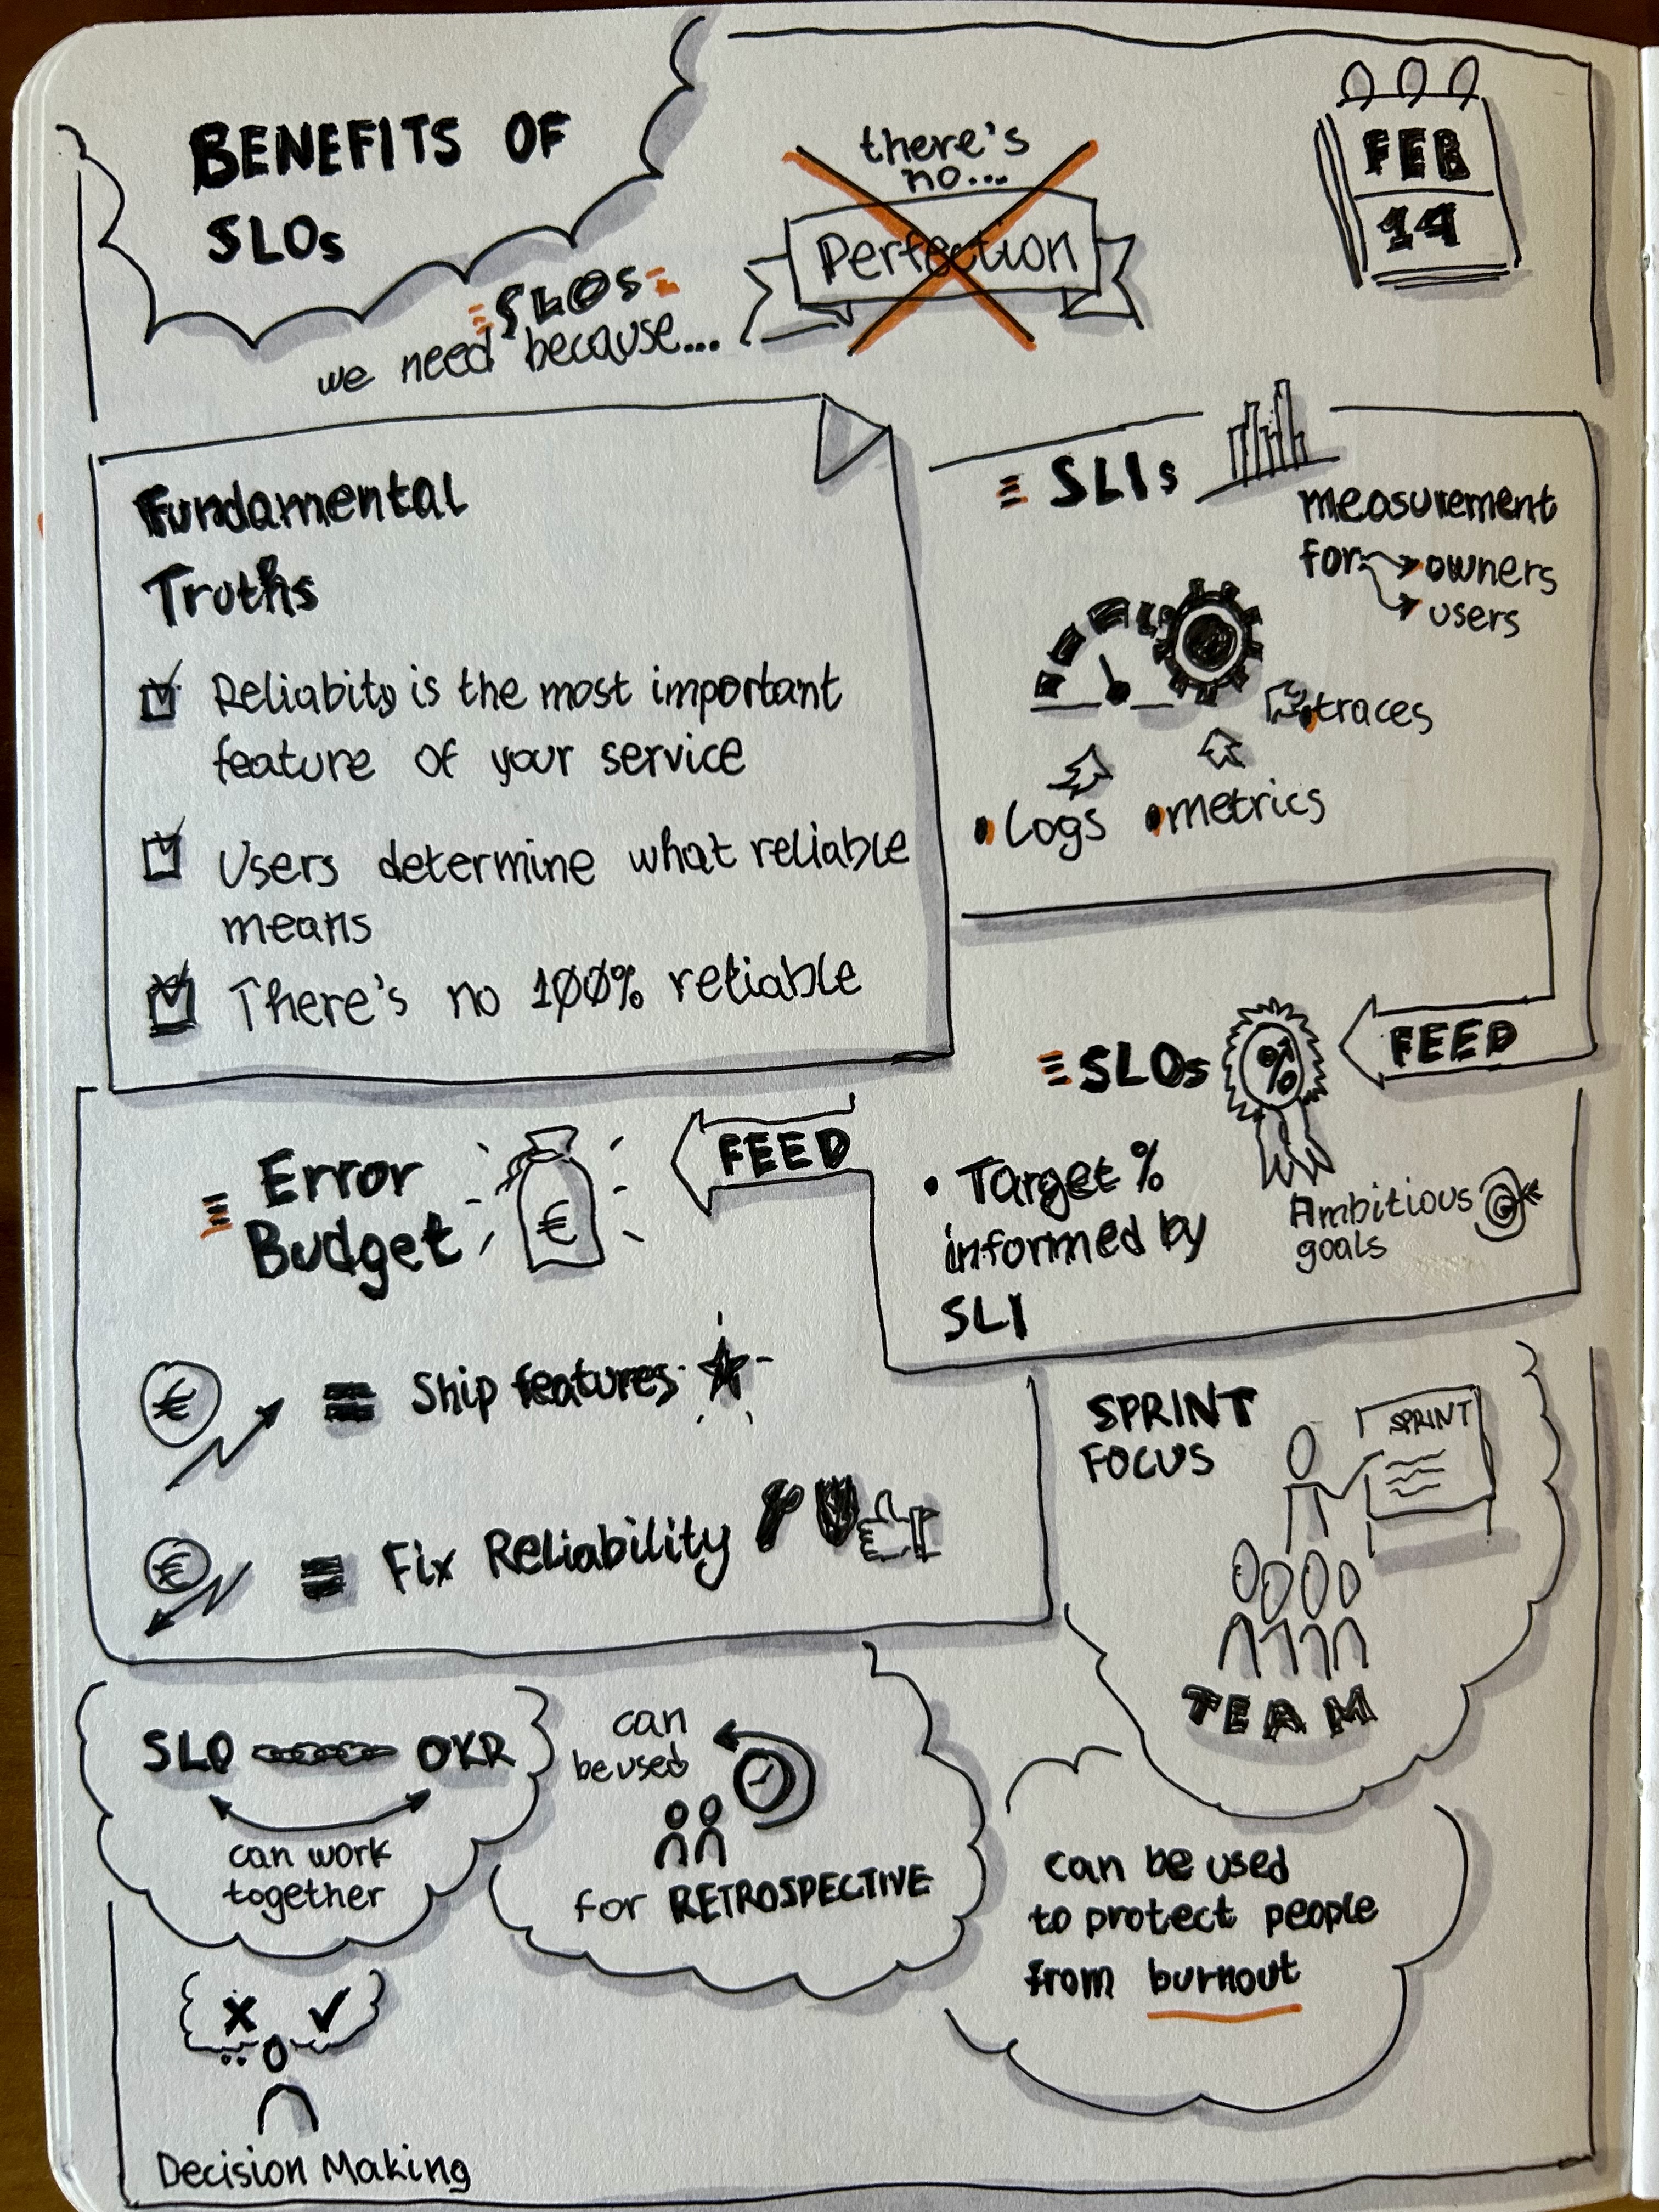 BENEFITS OF
SLOs
FEB
14
we need SLOs because...
there's
no...
Perfection
Fundamental
Truths
Reliabity is the most important
feature of your service
Users determine what reliable
means
There's no 100% reliable
SLIs
measurement
for owners
users
traces
Logs
metrics
FEED
SLOs
%
Target %
informed by
SLI
Ambitious
goals
FEED
Error
Budget
€
€ = Ship features
€ = Fix Reliability
SPRINT
FOCUS
SPRINT
TEAM
SLO OKR
can work
together
can
be used
for RETROSPECTIVE
can be used
to protect people
from burnout
Decision Making